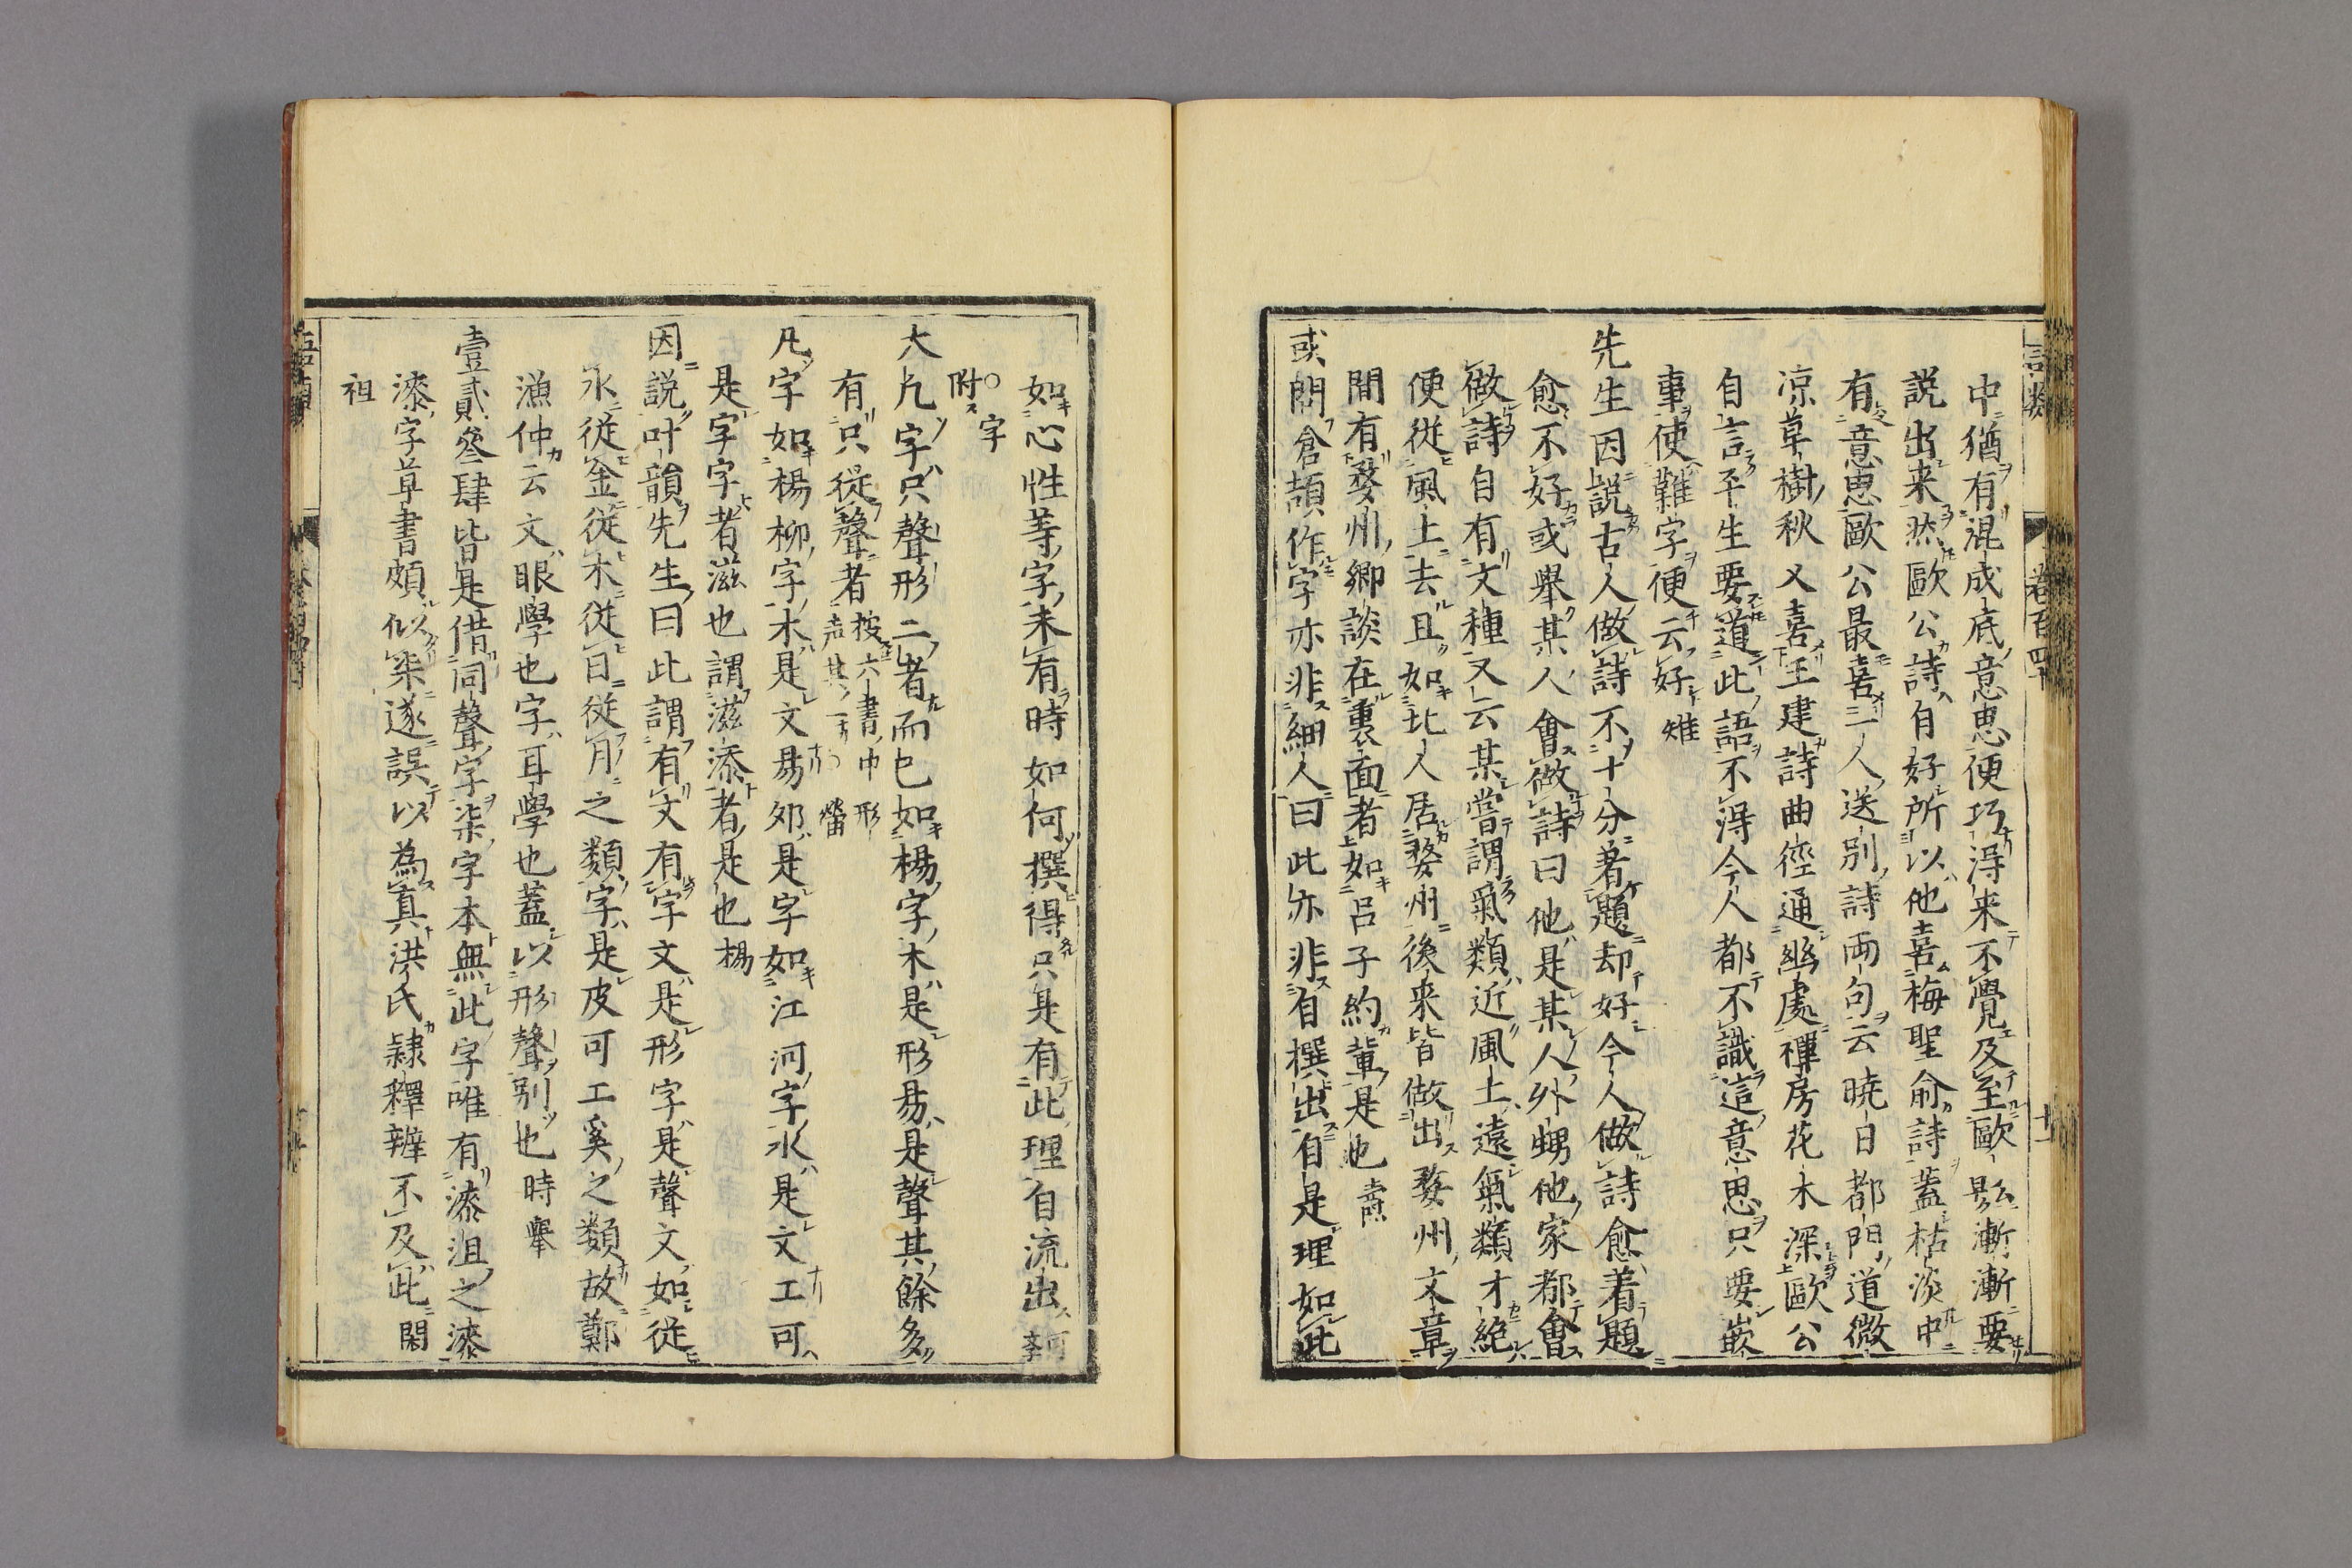 中猶有混成底意思便巧得来不覺及至歐公漸漸要
説出来然歐公詩自好所以他喜梅聖俞詩蓋枯淡中
有意思歐公最喜一人送別詩両句云曉日都門道微
凉草樹秋又喜王建詩曲徑通幽處禪房花木深歐公
自言平生要道此語不得今人都不識這意思只要嵌
事使難字便云好 雉
先生因説古人做詩不十分著題却好今人做詩愈着題
愈不好或舉某人會做詩曰他是某人外甥他家都會
做詩自有文種又云某嘗謂氣類近風土遠氣類才絶
便從風土去且如北人居婺州後来皆做出婺州文章
間有婺州郷談在裏面者如呂子約輩是也 燾
或問倉頡作字亦非細人曰此亦非自撰出自是理如此
如心性等字未有時如何撰得只是有此理自流出 軻
○字
附
大凡字只聲形二者而已如楊字木是形昜是聲其餘多
有只從聲者 按六書中形声其一 㽦
凡字如楊柳字木是文昜夘是字如江河字水是文工可
是字字者滋也謂滋添者是也 楊
因説叶韻先生曰此謂有文有字文是形字是聲文如從
水從金從木從日從月之類字是皮可工奚之類故鄭
漁仲云文眼學也字耳學也蓋以形聲別也 時舉
壹貳叄肆皆是借同聲字柒字本無此字唯有漆沮之漆
漆字草書頗似柒遂誤以為真洪氏隷釋辨不及此 閎
祖